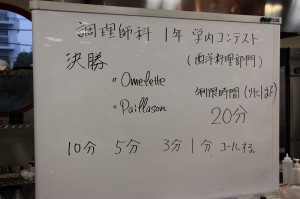 調理師科 1年 学内コンテスト
決勝 (西洋料理部門)
• Omelette
• Paillasson
制限時間
20分
10分 5分 3分 1分 コールする。